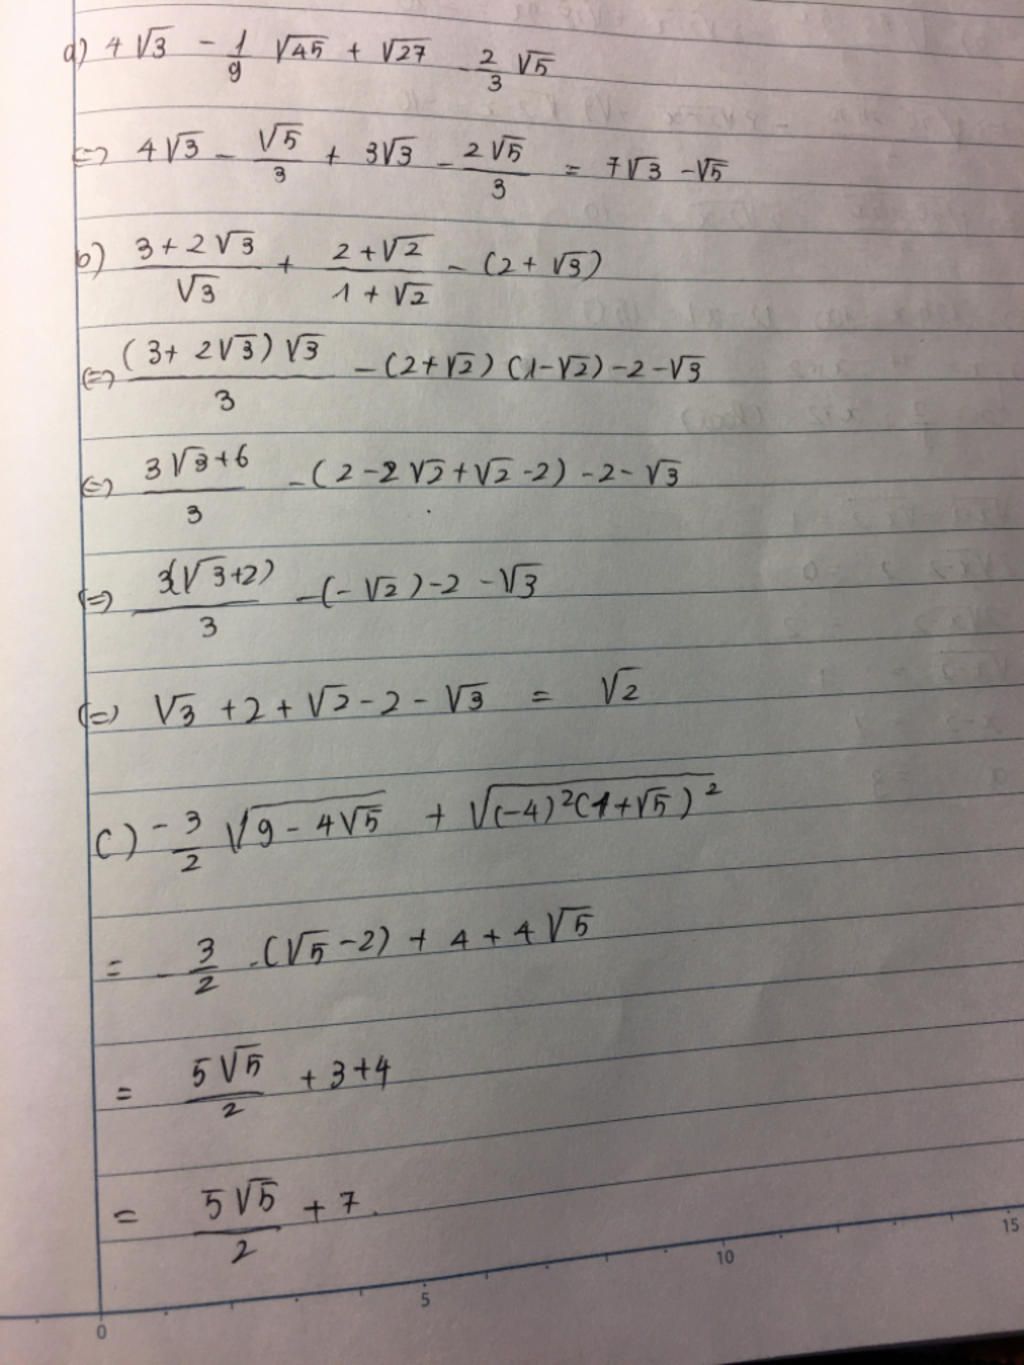 a) 4√3 - 1/9 √45 + √27 - 2/3 √5
(=) 4√3 - √5/3 + 3√3 - 2√5/3 = 7√3 - √5
b) (3+2√3)/√3 + (2+√2)/(1+√2) - (2+√3)
(=) (3+2√3)√3/3 - (2+√2)(1-√2) - 2 - √3
(=) (3√3+6)/3 - (2-2√2+√2-2) - 2 - √3
(=) 3(√3+2)/3 - (-√2) - 2 - √3
(=) √3 + 2 + √2 - 2 - √3 = √2
c) -3/2 √(9-4√5) + √((-4)²(1+√5)²)
= -3/2 .(√5-2) + 4 + 4√5
= 5√5/2 + 3+4
= 5√5/2 + 7.
0 5 10 15